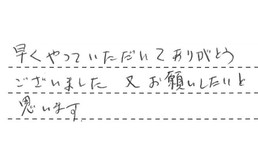 早くやっていただいてありがとう
ございました 又お願いしたいと
思います